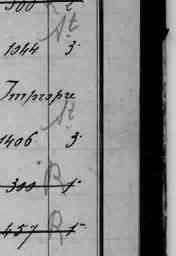 300 2
St
1044 3
Impropre
St
1406 3
300 1
R
457 1
R